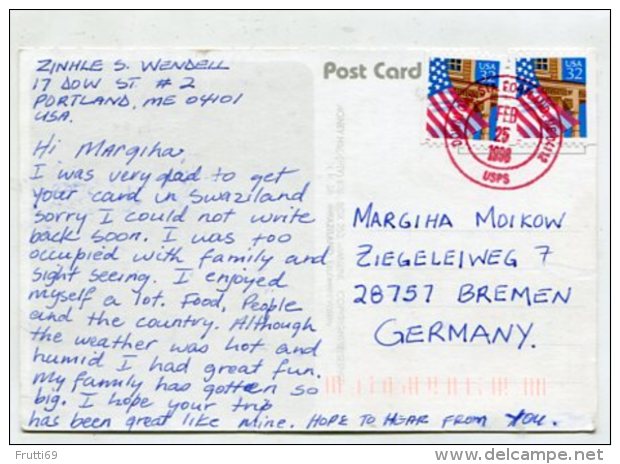 ZINHLE S. WENDELL
17 DOW ST. # 2
PORTLAND, ME 04101
USA.
Hi Margiha,
I was very glad to get
your card in Swaziland
sorry I could not write
back soon. I was too
occupied with family and
sight seeing. I enjoyed
myself a lot. Food, People
and the country. Although
the weather was hot and
humid I had great fun.
My family has gotten so
big. I hope your trip
has been great like mine. HOPE TO HEAR FROM YOU.
Post Card
USA
32
USA
32
FEB
25
1998
USPS
MARGIHA MOIKOW
ZIEGELEIWEG 7
28757 BREMEN
GERMANY.
Frutti69
www.delcampe.net